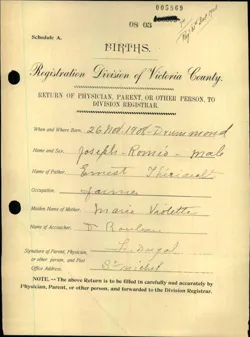 005869
08 03
Schedule A.
BIRTHS.
Registration Division of Victoria County.
RETURN OF PHYSICIAN, PARENT, OR OTHER PERSON, TO
DIVISION REGISTRAR.
When and Where Born, 26 Nov 1908 Drummond
Name and Sex, Joseph - Romeo - male
Name of Father, Ernest
Occupation, farmer
Maiden Name of Mother, Marie Violette
Name of Accoucher,
Signature of Parent, Physician,
or other person, and Post
Office Address, St Michel
NOTE. --The above Return is to be filled in carefully and accurately by
Physician, Parent, or other person, and forwarded to the Division Registrar.